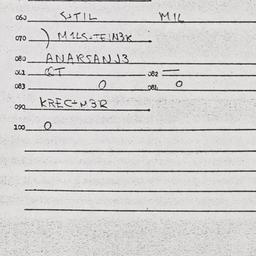 060 STIL MIL
070 ) M1LS-TEIN3R
080 ANARSANJ3
081 CT 082 —
083 O 084 O
090 KREC+N3R
100 O